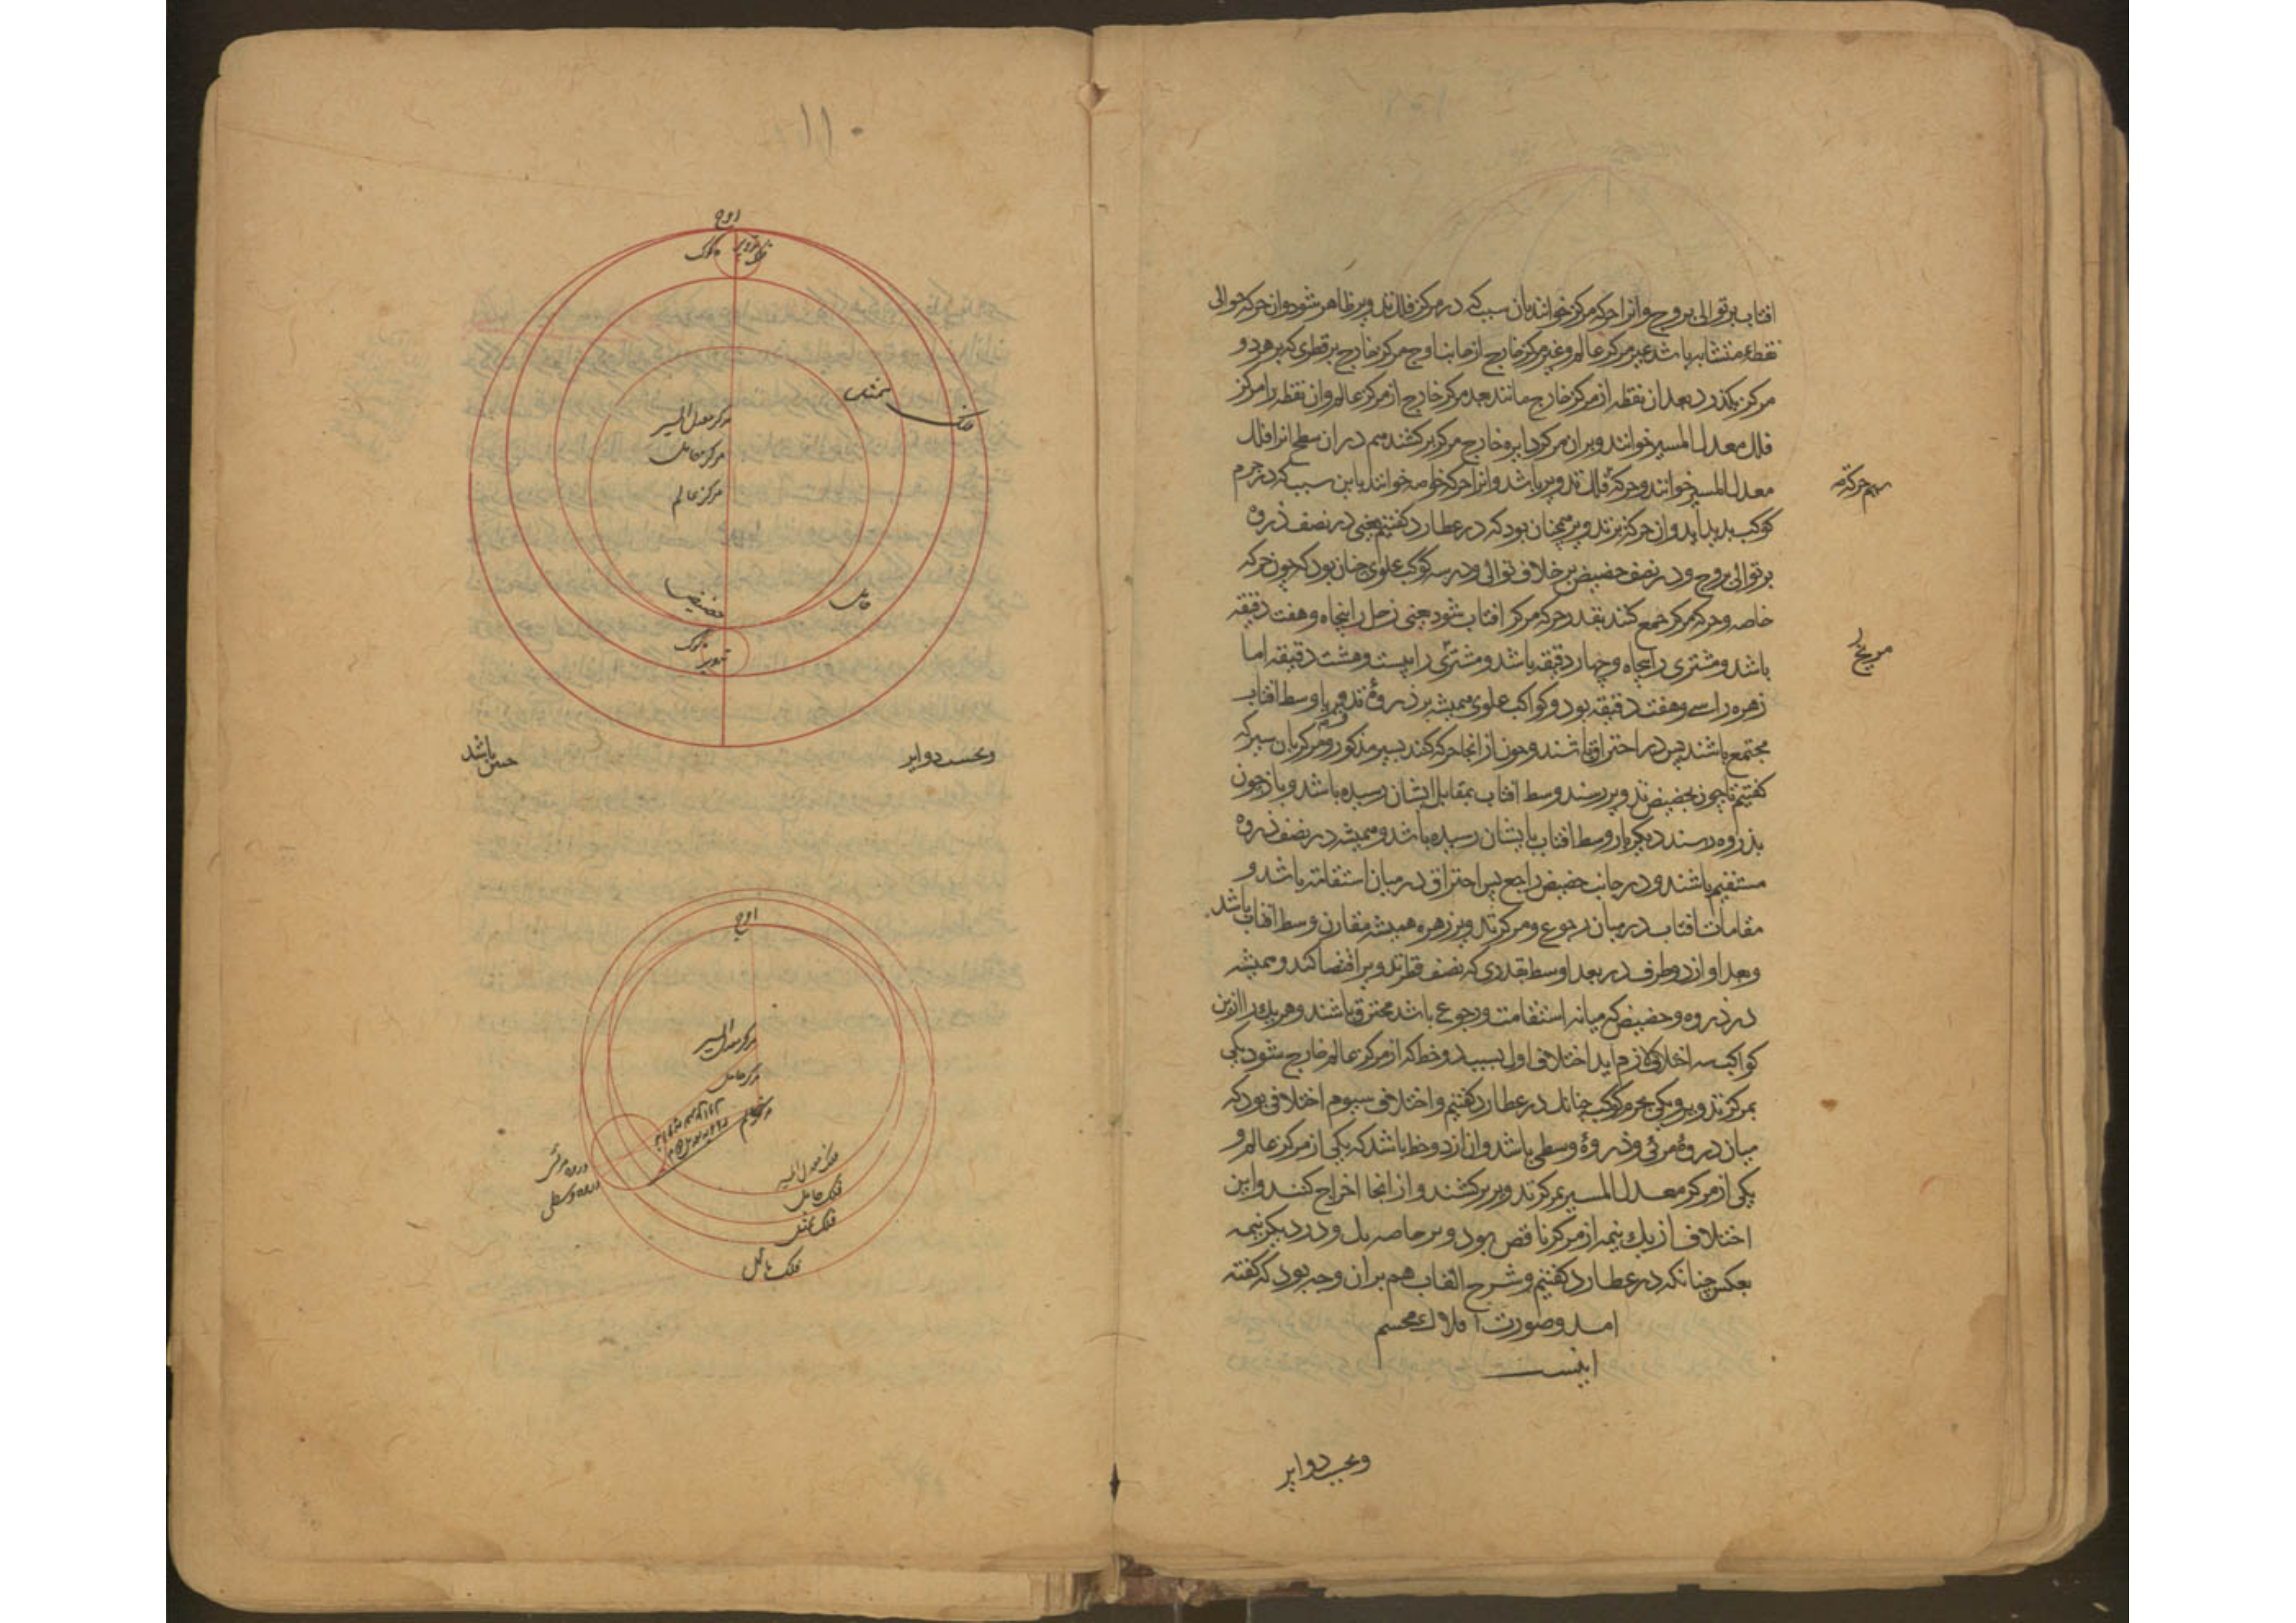 افتاب بر توالی بروج و انرا حرکه مرکز خوانند بان سبب که در مرکز فلک تدویر ظاهر شود و ان حرکه حوالی
نقطهٔ متشابه باشد غیر مرکز عالم و غیر مرکز خارج از جانب اوج مرکز خارج بر قطری که بر هر دو
مرکز بکذرد بعد ان نقطه از مرکز خارج مانند بعد مرکز خارج از مرکز عالم و ان نقطه را مرکز
فلک معدل المسیر خوانند و بران مرکز دایره خارج مرکز بر کشند هم در ان سطح انرا فلک
معدل المسیر خوانند و حرکهٔ فلک تدویر باشد و انرا حرکه خاصه خوانند باین سبب که در جرم
کوکب بدید اید و ان حرکه بر تدویر همچنان بود که در عطارد کفتیم یعنی در نصف ذروه
بر توالی بروج و در نصف حضیض بر خلاف توالی و در سه کوکب علوی چنان بود که چون حرکه
خاصه و حرکه مرکز جمع کنند بقدر حرکه مرکز افتاب شود یعنی زحل را پنجاه و هفت دقیقه
باشد و مشتری را پنجاه و چهار دقیقه باشد و مشتری را بیست و هشت دقیقه اما
زهره را سی و هفت دقیقه بود و کواکب علوی همیشه بر ذروهٔ تدویر با وسط افتاب
مجتمع باشند پس در احتراق باشند و چون از انجا حرکه کنند بسیر مذکور و مرکز بان سیر که
کفتیم تا چون بحضیض تدویر رسند وسط افتاب بمقابل ایشان رسیده باشد و باز چون
بذروه رسند دیکر بار وسط افتاب بایشان رسیده باشد و همیشه در نصف ذروه
مستقیم باشند و در جانب حضیض راجع پس احتراق در میان استقامت باشد و
مقامات افتاب در میان رجوع و مرکز تدویر زهره همیشه مقارن وسط افتاب باشد
و بعد او از دو طرف در بعد اوسط بقدری که نصف قطر تدویر اقتضا کند و همیشه
در ذروه و حضیض که میانه استقامت و رجوع باشد محترق باشند و هر یک را ازین
کواکب سه اختلاف لازم اید اختلاف اول بسبب دو خط که از مرکز عالم خارج شود یکی
بمرکز تدویر و یکی بجرم کوکب چنانک در عطارد کفتیم و اختلاف سیوم اختلافی بود که
میان ذروهٔ مرئی و ذروهٔ وسطی باشد و ان از دو خط باشد که یکی از مرکز عالم و
یکی از مرکز معدل المسیر بمرکز تدویر بر کشند و از انجا اخراج کنند و این
اختلاف از یک نیمه از مرکز ناقص بود و بر خاصه بل و در دیکر نیمه
بعکس چنانکه در عطارد کفتیم و شرح القاب هم بران وجه بود که کفته
امد و صورت افلاک مجسم
اینست
مریخ را
و بحسب دوایر
۱۱۰
اوج
فلک تدویر
کوکب
ممثل
فلک
مرکز معدل المسیر
مرکز حامل
مرکز عالم
حضیض
حامل
کوکب
تدویر
و بحسب دوایر
چنین باشد
اوج
مرکز معدل المسیر
مرکز حامل
مرکز عالم
ذروه وسطی
فلک معدل المسیر
فلک حامل
فلک ممثل
فلک مائل